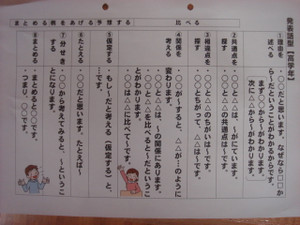 発表話型【高学年】
比べる
①理由を述べる
・○○だと思います。なぜなら□□から～だということがわかるからです。
まず○○から～がわかります。
次に△△から～がわかります。
②共通点を探す
・○○と△△は、～がにています。
・○○と△△の共通点は～です。
③相違点を探す
・○○と△△のちがいは～です。
・○○とちがって、△△は～です。
④関係を考える
・○○が～すると、△△が～のように変わります。
・○○と△△は、～の関係にあります。
・○○と△△を比べると～だということがわかります。
・○○は△△に比べて～です。
まとめる 例をあげる 予想する
⑤仮定する
・もし～だと考える（仮定する）と、
⑥たとえる
・○○だと思います。たとえば～です。
⑦分せき
・○○から考えてみると、～ということになります。
⑧まとめる
・まとめると○○です。
・つまり○○です。